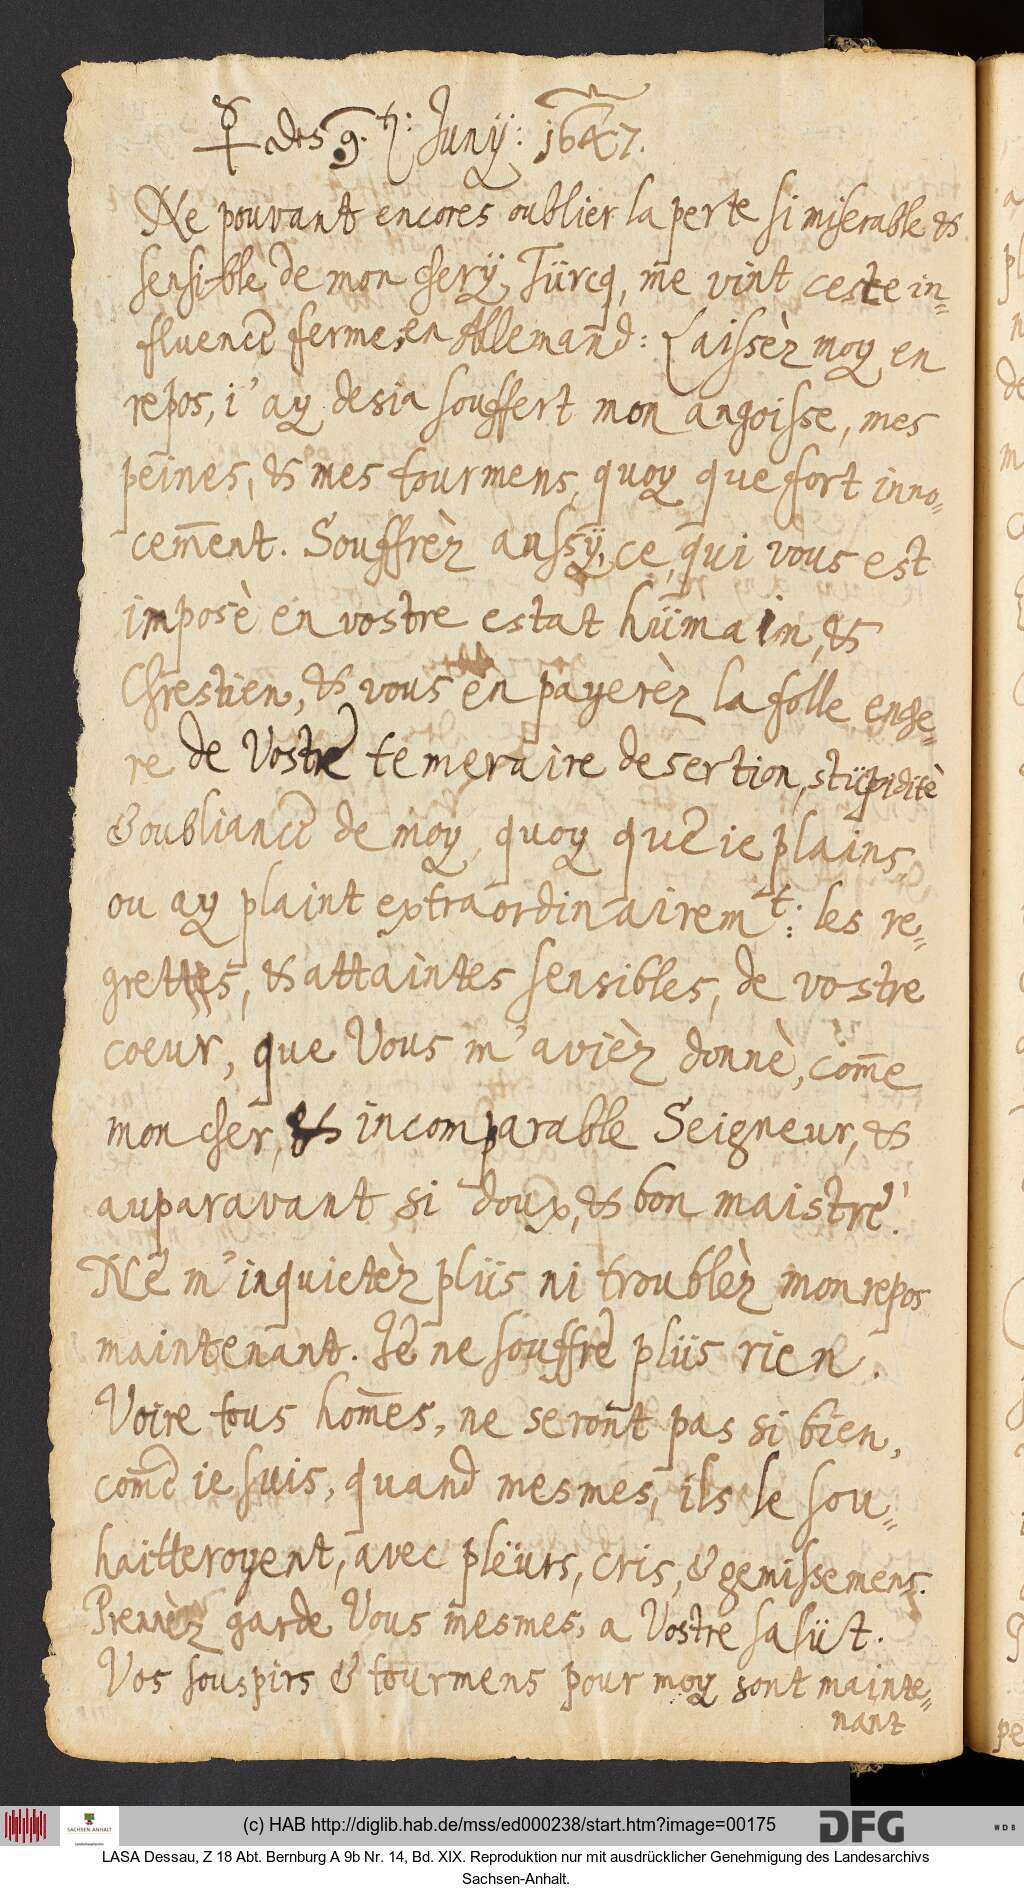 ☿ des 9.ten: Junÿ: 1647.
Ne pouvant encores oublier la perte si miserable &
sensible de mon cherÿ, Türcq, me vint ceste in„
fluence ferme, en Allemand: Laissèz moy en
repos, i'ay desia souffert mon angoisse, mes
peines, & mes tourmens, quoy que fort inno„
cem̄ent. Souffrèz aussÿ, ce, qui vous est
imposè en vostre estat hümain, &
Chrestien, & vous en payerèz la folle enche„
re de Vostre temeraire desertion, stüpiditè
& oubliance de moy, quoy que ie plains,
ou ay plaint extraordinairemt: les re„
grettes, & attaintes sensibles, de vostre
coeur, que Vous m'avièz donnè, com̄e
mon cher, & incomparable Seigneur, &
auparavant si doux, & bon maistre'.
Ne m'inquietèz plüs ni troublèz mon repos
maintenant. Je ne souffre plüs rien.
Voire tous hom̄es, ne seront pas si bien,
com̄e ie suis, quand mesmes, ils le sou„
haitteroyent, avec plëurs, cris, & gemissemens.
Prenèz garde Vous mesmes, a Vostre salüt.
Vos souspirs & tourmens pour moy sont mainte„
nant
(c) HAB http://diglib.hab.de/mss/ed000238/start.htm?image=00175
DFG
WDB
SACHSEN-ANHALT
LASA Dessau, Z 18 Abt. Bernburg A 9b Nr. 14, Bd. XIX. Reproduktion nur mit ausdrücklicher Genehmigung des Landesarchivs
Sachsen-Anhalt.